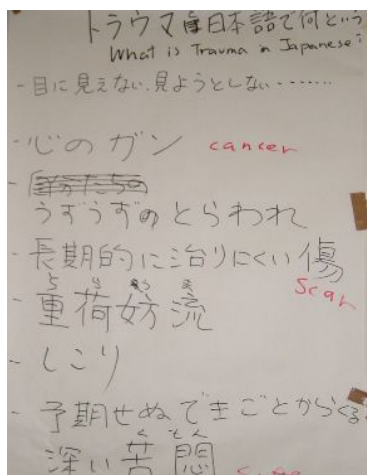 トラウマは日本語で何という
What is Trauma in Japanese?
- 目に見えない、見ようとしない……
- 心のガン cancer
- 自分たちの
うずうずのとらわれ
- 長期的に治りにくい傷
scar
- 重荷妨流
- しこり
- 予期せぬできごとからくる
くもん
深い苦悶